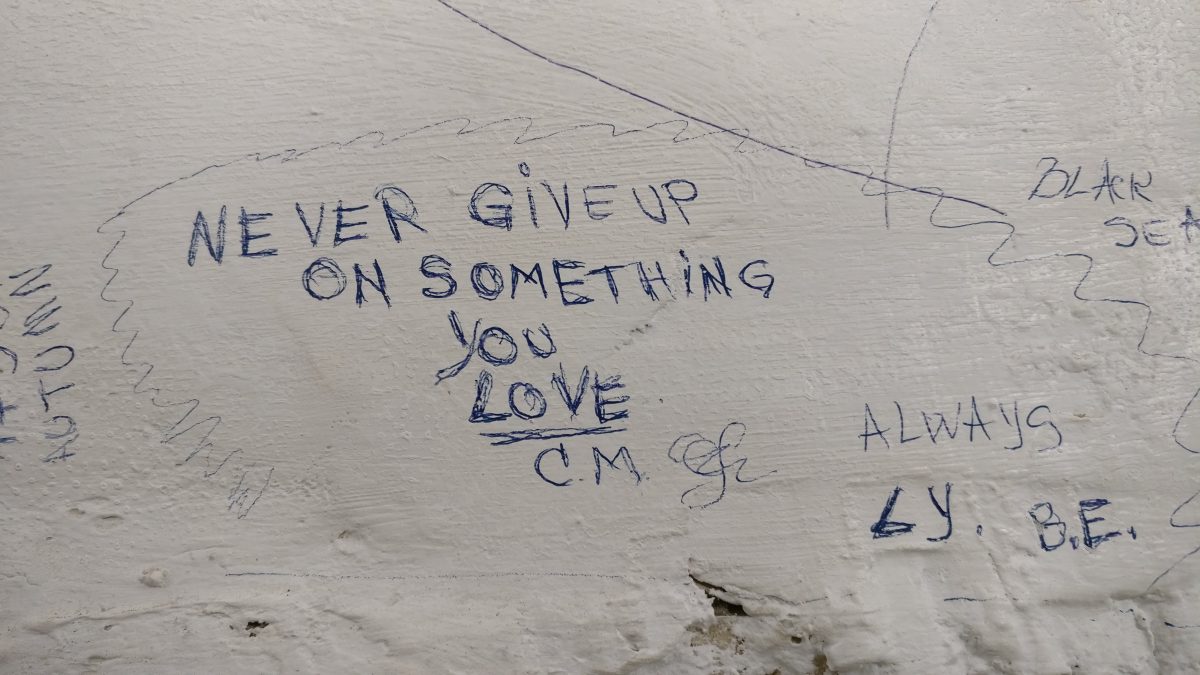 NEVER GiVE UP
ON SOMETHiNG
YOU
LOVE
C.M.
BLACK
SEA
ALWAYS
LY. B.E.
AUTUMN